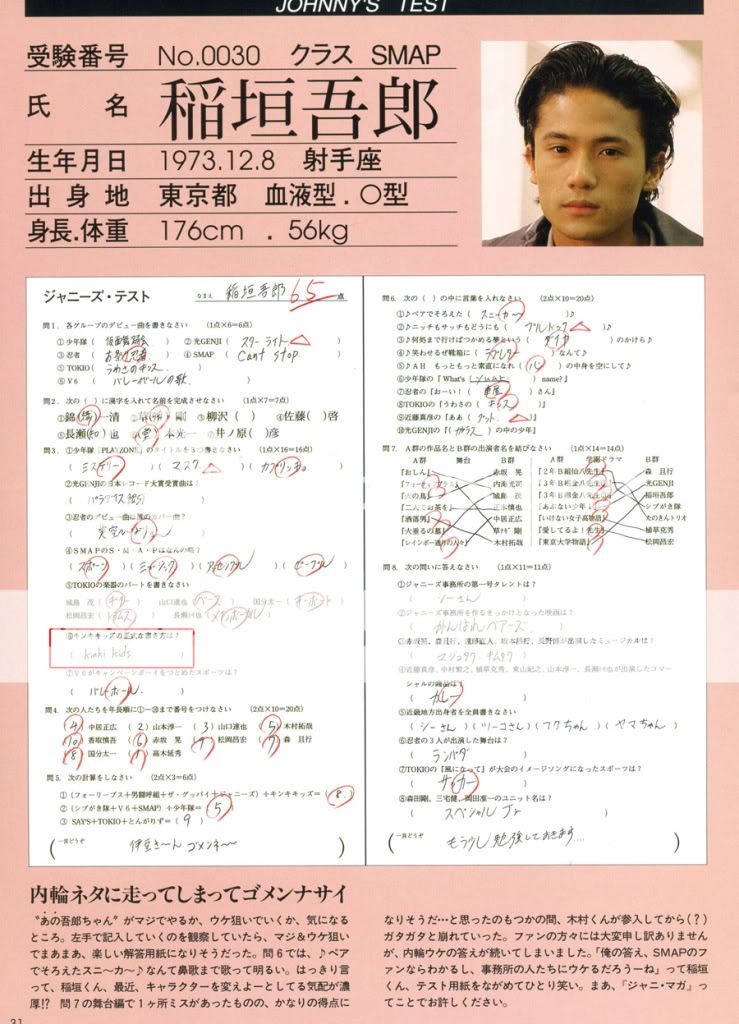 JOHNNY'S TEST
受験番号 No.0030 クラス SMAP
氏名 稲垣吾郎
生年月日 1973.12.8 射手座
出身地 東京都 血液型.O型
身長.体重 176cm . 56kg
ジャニーズ・テスト なまえ 稲垣吾郎 65点
問1. 各グループのデビュー曲を書きなさい (1点×6=6点)
①少年隊( 仮面舞踏会 ) ②光GENJI( スターライト )
③忍者( お祭り忍者 ) ④SMAP( Can't stop )
⑤TOKIO( うわさのキッス )
⑥V6( バレーボールの歌 )
問2. 次の( )に漢字を入れて名前を完成させなさい (1点×7=7点)
①錦(織)一清 ②草(彅)剛 ③柳沢( ) ④佐藤( )啓
⑤長瀬(知)也 ⑥(堂)本光一 ⑦井ノ原( )彦
問3. ①少年隊『PLAYZONE』のタイトルを3つ書きなさい (1点×16=16点)
( ミステリー )( マスク )( カプリッチョ )
②光GENJIの日本レコード大賞受賞曲は?
③忍者のデビュー曲は誰のカバー曲?
④SMAPのS・M・A・Pはなんの略?
( スポーツ )( ミュージック )( アッセンブル )( ピープル )
⑤TOKIOの楽器のパートを書きなさい
城島 茂( ギター ) 山口達也( ベース ) 国分太一( キーボード )
松岡昌宏( ドラムス ) 長瀬智也( )
⑥キンキキッズの正式な書き方は?
( kinki kids )
⑦V6がキャンペーンボーイをつとめたスポーツは?
( バレーボール )
問4. 次の人たちを年長順に①〜⑩まで番号をつけなさい (2点×10=20点)
(4)中居正広 (2)山本淳一 (3)山口達也 (5)木村拓哉
(10)香取慎吾 (6)赤坂 晃 (9)松岡昌宏 (7)森 且行
(8)国分太一 (1)高木延秀
問5. 次の計算をしなさい (2点×3=6点)
①(フォーリーブス+男闘呼組+ザ・グッバイ+ジャニーズ)÷キンキキッズ=( 8 )
②(シブがき隊+V6+SMAP)÷少年隊=( 5 )
③SAY'S+TOKIO+とんがりず=( 9 )
一言どうぞ
( 伊豆さ〜ん ゴメンネ〜 )
問6. 次の( )の中に言葉を入れなさい (2点×10=20点)
①♪ペアでそろえた( スニーカー )♪
②♪ニッチもサッチもどうにも( ブルドック )♪
③♪何処まで行けばつかめる夢という( ダイヤ )のかけら♪
④♪笑わせるぜ靴箱に( ラブレター )なんて♪
⑤♪AH もっともっと素直になれ( 心 )の中身を空にして♪
⑥少年隊の「What's( your )name?」
⑦忍者の『おーい!( 車屋 )さん』
⑧TOKIOの『うわさの( キッス )』
⑨近藤真彦の『ああ( グッド )』
⑩光GENJIの『( ガラス )の中の少年』
問7. A群の作品名とB群の出演者名を結びなさい (1点×14=14点)
A群 舞台 B群 A群 学園ドラマ B群
『おしん』 赤坂 晃 『2年B組仙八先生』 森 且行
内海光司 『3年B組金八先生』 光GENJI
城島 茂 稲垣吾郎
『二人でお茶を』 正木慎也 『あぶない少年』 シブがき隊
『洒落男』 中居正広 『いけない女子高物語』 たのきんトリオ
『火垂るの墓』 草彅 剛 『愛してるよ!先生』 植草克秀
『レインボー通りの人々』 木村拓哉 『東京大学物語』 松岡昌宏
問8. 次の問いに答えなさい (1点×11=11点)
①ジャニーズ事務所の第一号タレントは?
( シーさん )
②ジャニーズ事務所を作るきっかけとなった映画は?
( がんばれベアーズ )
③赤坂晃、森且行、遠藤直人、坂本昌行、長野博が出演したミュージカルは?
④近藤真彦、中村繁之、植草克秀、東山紀之、山本淳一、長瀬智也が出演したコマーシャルの商品は?
( カレー )
⑤近畿地方出身者を全員書きなさい
( シーさん )( ツーコさん )( フクちゃん )( ヤマちゃん )
⑥忍者の3人が出演した舞台は?
( ランバダ )
⑦TOKIOの『風になって』が大会のイメージソングになったスポーツは?
( サッカー )
⑧森田剛、三宅健、岡田准一のユニット名は?
( スペシャルJr )
一言どうぞ
( もう少し勉強しておきます… )
内輪ネタに走ってしまってゴメンナサイ
〝あの吾郎ちゃん〟がマジでやるか、ウケ狙いでいくか、気になる
ところ。左手で記入していくのを観察していたら、マジ&ウケ狙い
でまあまあ、楽しい解答用紙になりそうだった。問6では、♪ペア
でそろえたスニ〜カ〜♪なんて鼻歌まで歌って明るい。はっきり言
って、稲垣くん、最近、キャラクターを変えよーとしてる気配が濃
厚!? 問7の舞台編で1ヶ所ミスがあったものの、かなりの得点に
なりそうだ…と思ったのもつかの間、木村くんが参入してから(?)
ガタガタと崩れていった。ファンの方々には大変申し訳ありません
が、内輪ウケの答えが続いてしまいました。「俺の答え、SMAPのフ
ァンならわかるし、事務所の人たちにウケるだろうーね」って稲垣
くん、テスト用紙をながめてひとり笑い。まあ、『ジャニ・マガ』っ
てことでお許しください。
31